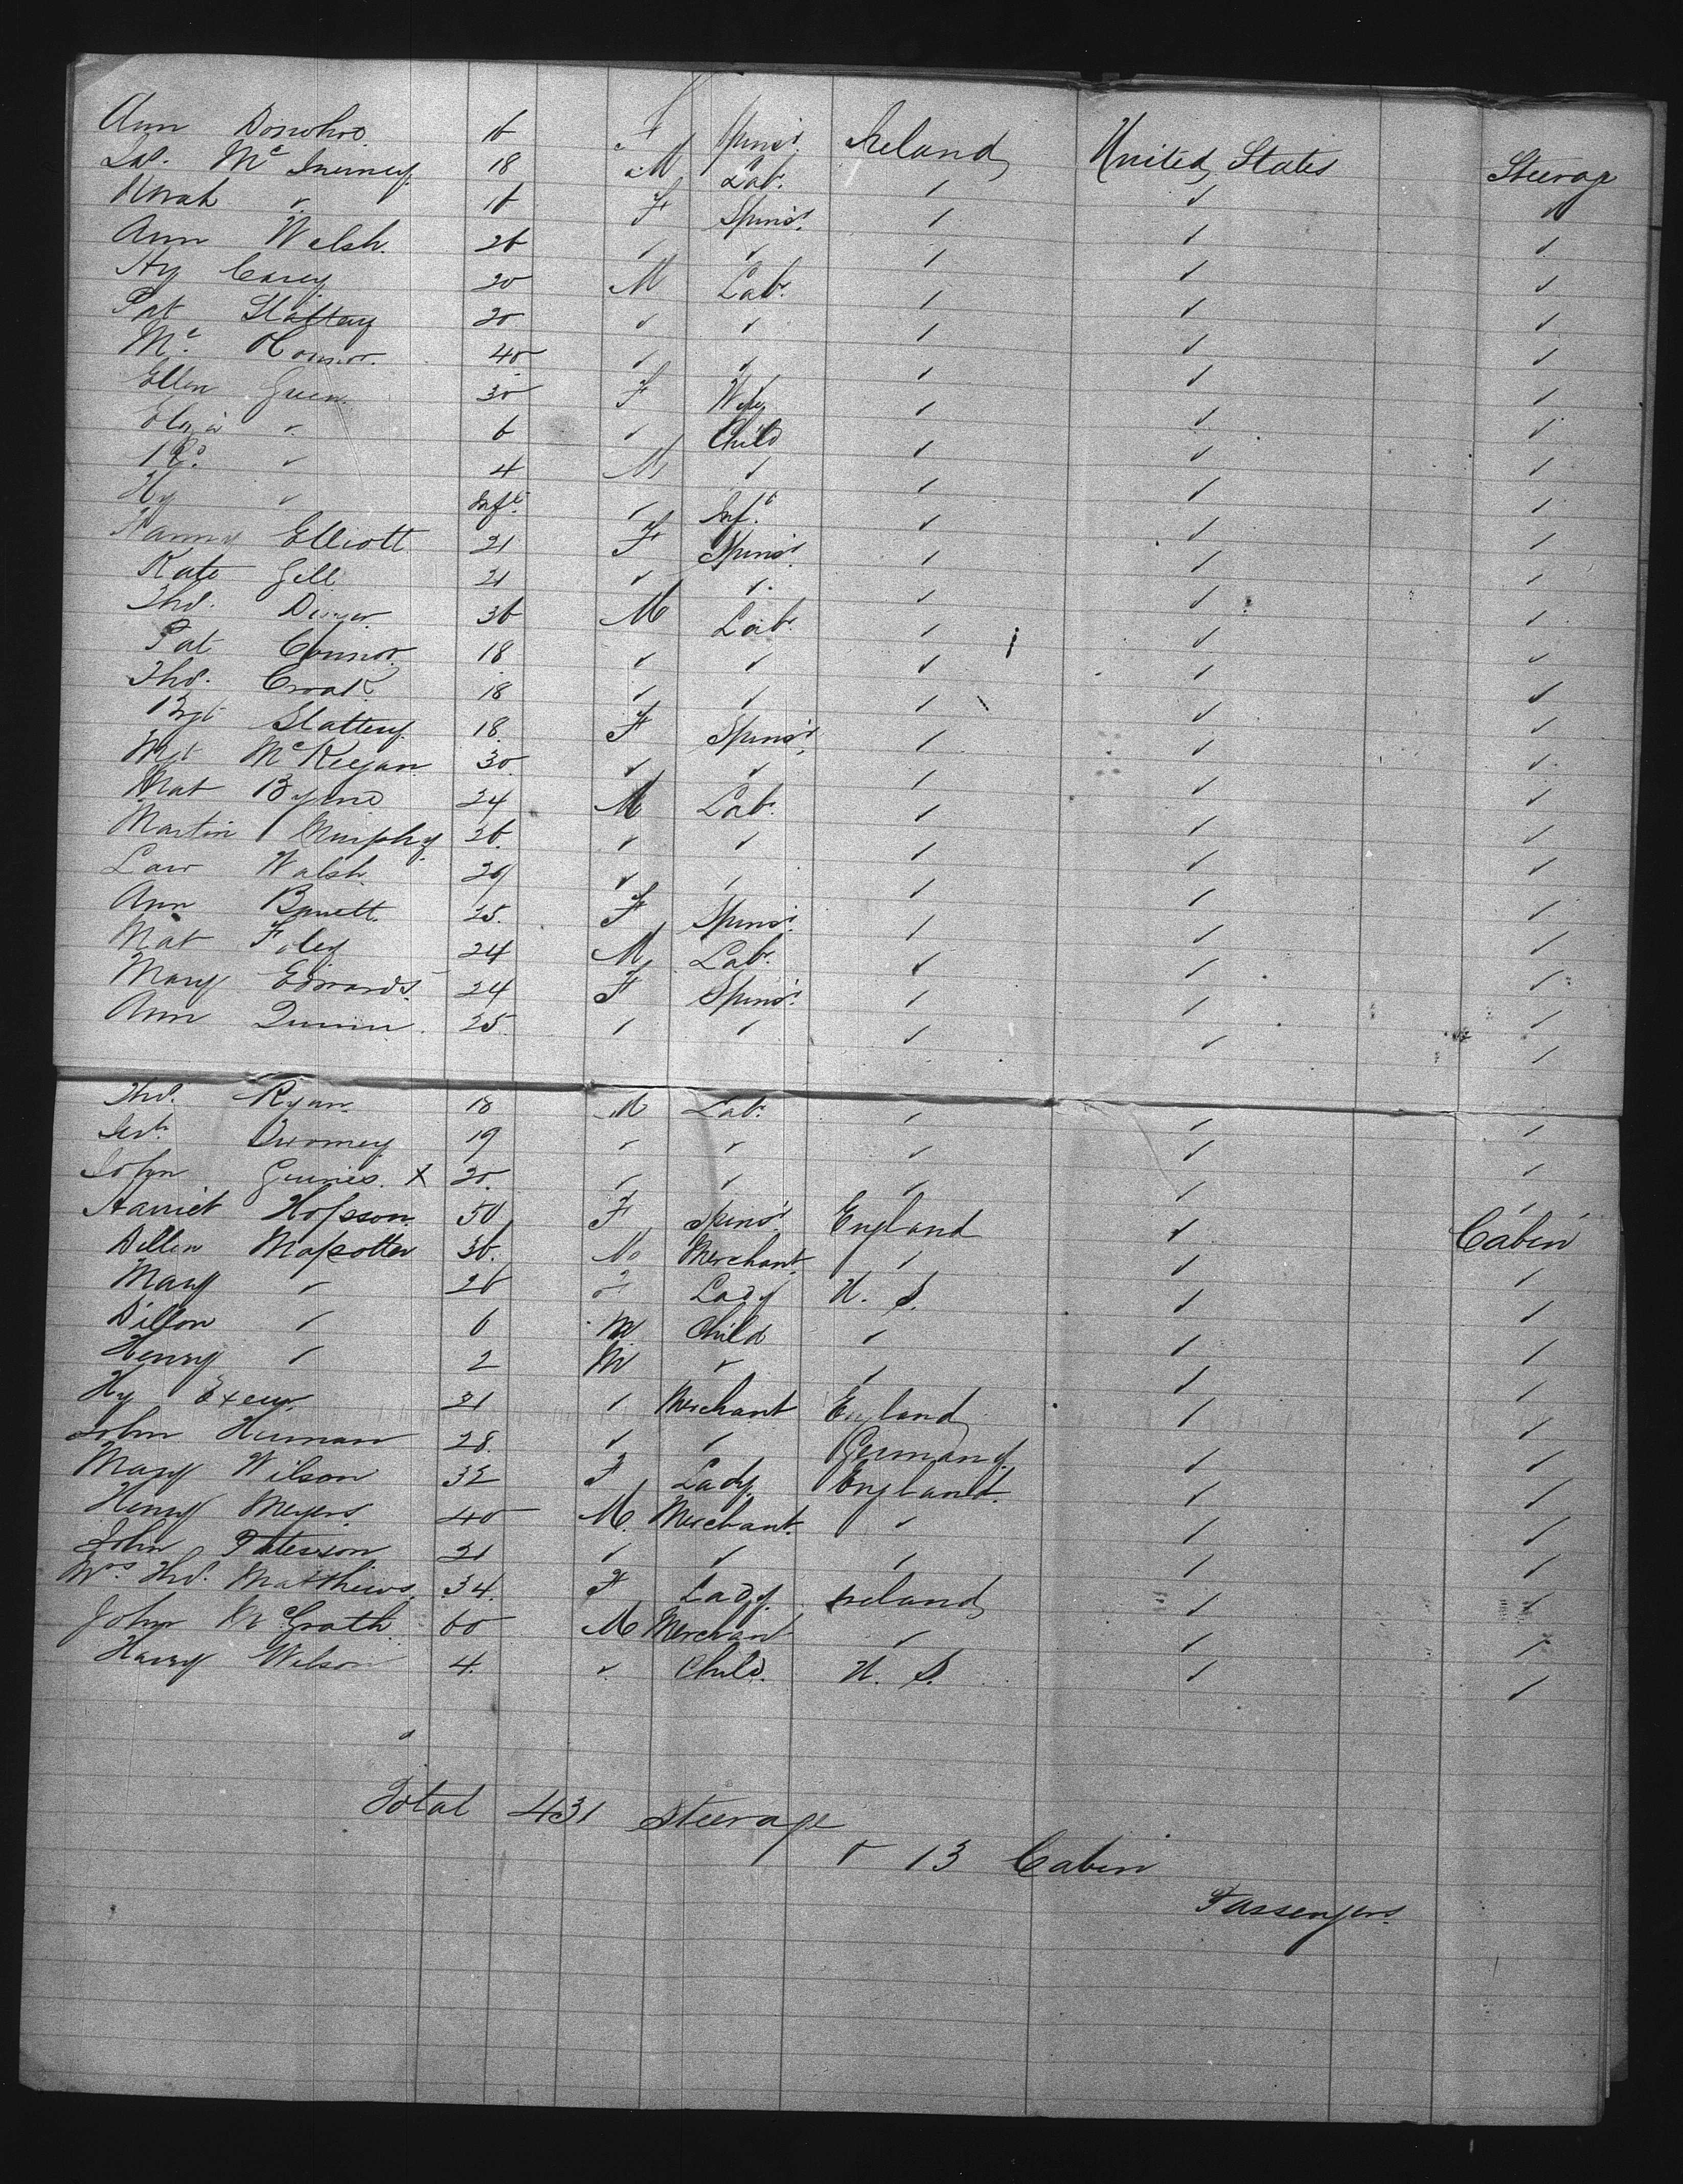 Ann Donohoe 16 F Spinsr. Ireland United States Steerage
Jas. McInerney 18 M Labr. " " "
Norah " 16 F Spinsr. " " "
Ann Welsh 26 " " " " "
Hy Carey 20 M Labr. " " "
Pat Slattery 20 " " " " "
Mc. OConnor 40 " " " " "
Ellen Green 30 F Wife " " "
Eliza " 6 " Child " " "
Rd. " 4 M " " " "
Hy " Inft. " Inft. " " "
Nanny Elliott 21 F Spinsr. " " "
Kate Gill 21 " " " " "
Thos. Dwyer 36 M Labr. " " "
Pat Connor 18 " " " " "
Thos. Croak 18 " " " " "
Bgt Slattery 18 F Spinsr. " " "
Mgt McKeegan 30 " " " " "
Mat Byrne 24 M Labr. " " "
Martin Murphy 26 " " " " "
Law Walsh 29 " " " " "
Ann Barrett 25 F Spinsr. " " "
Mat Foley 24 M Labr. " " "
Mary Edwards 24 F Spinsr. " " "
Ann Quinn 25 " " " " "
Thos. Ryan 18 M Labr. " " "
Jerh. Twomey 19 " " " " "
John x 20 " " " " "
Harriet Hopson 50 F Spinsr. England " Cabin
Dillon 36 M Merchant " " "
Mary " 26 F Lady U. S. " "
Dillon " 6 M Child " " "
Henry " 2 M " " " "
Hy 21 " Merchant England " "
John Herman 28 " " Germany " "
Mary Wilson 32 F Lady England " "
Henry Meyers 40 M Merchant " " "
John Paterson 21 " " " " "
Mrs. Thos. Matthews 34 F Lady Ireland " "
John McGrath 60 M Merchant " " "
Harry Wilson 4 " Child U. S. " "
Total 431 Steerage
+ 13 Cabin
Passengers